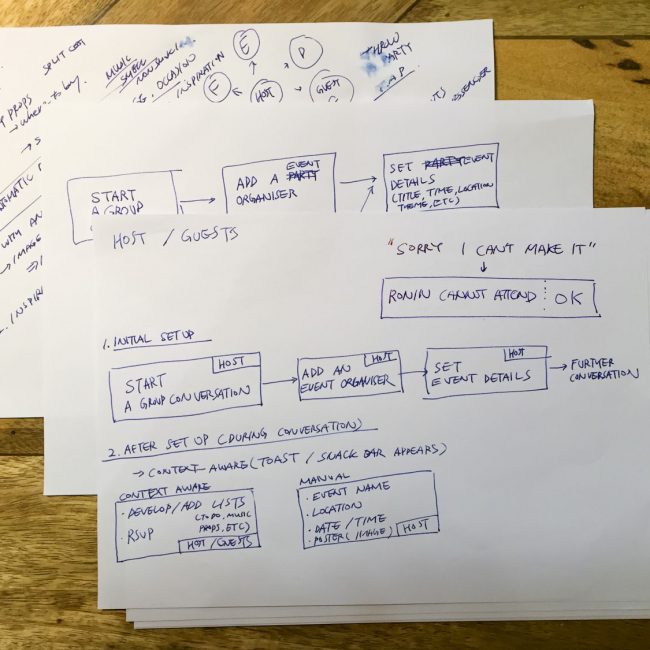 SPLIT COST
PROPS
→ where to buy.
MUSIC
OCCASION
INSPIRATION
E
P
F
HOST
GUEST
THROW
PARTY
WITH AN
→ IMAGE
START
A GROUP
ADD A EVENT PARTY
ORGANISER
SET PARTY EVENT
DETAILS
(TITLE, TIME, LOCATION
THEME, ETC)
HOST / GUESTS
"SORRY I CANT MAKE IT"
RONIN CANNOT ATTEND OK
1. INITIAL SET UP
HOST
START
A GROUP CONVERSATION
HOST
ADD AN
EVENT ORGANISER
HOST
SET
EVENT DETAILS
→ FURTHER
CONVERSATION
2. AFTER SET UP (DURING CONVERSATION)
→ CONTEXT AWARE (TOAST / SNACK BAR APPEARS)
CONTEXT AWARE
· DEVELOP/ADD LISTS
(TODO, MUSIC
PROPS, ETC)
· RSVP
HOST / GUESTS
MANUAL
· EVENT NAME
· LOCATION
· DATE / TIME
· POSTER (IMAGE)
HOST